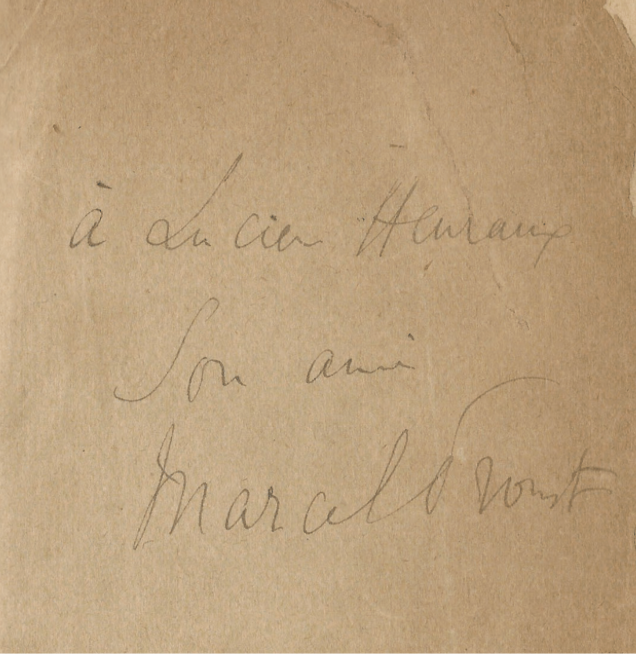 à Lucien Henraux
Son ami
Marcel Proust